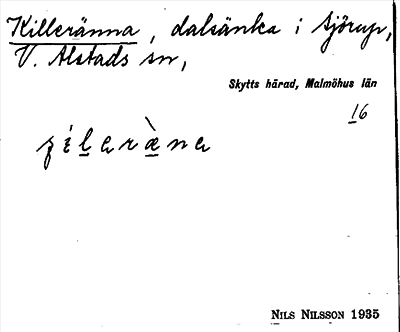 Killeränna, dalsänka i Sjörup,
V. Alstads sn,
Skytts härad, Malmöhus län
16
NILS NILSSON 1935